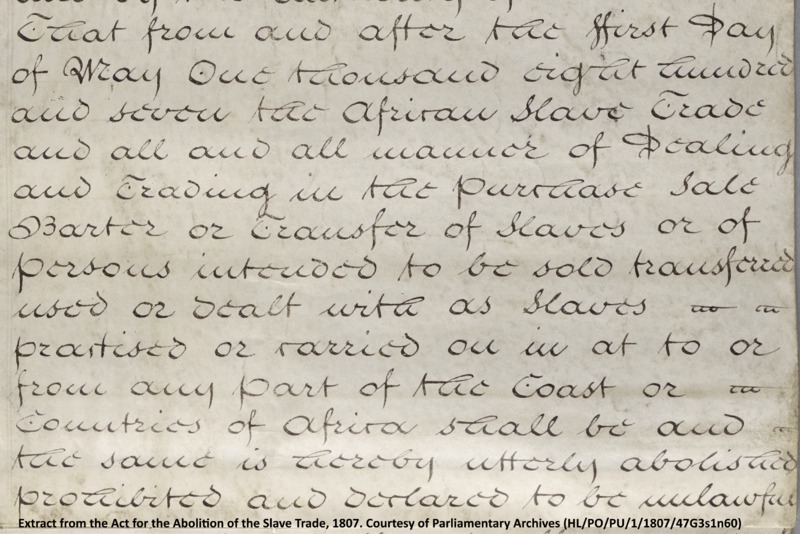 That from and after the ffirst Day
of May One thousand eight hundred
and seven the African Slave Trade
and all and all manner of Dealing
and Trading in the Purchase Sale
Barter or Transfer of Slaves or of
persons intended to be sold transferred
used or dealt with as Slaves
practised or carried on in at to or
from any part of the Coast or
Countries of Africa shall be and
the same is hereby utterly abolished
prohibited and declared to be unlawful
Extract from the Act for the Abolition of the Slave Trade, 1807. Courtesy of Parliamentary Archives (HL/PO/PU/1/1807/47G3s1n60)